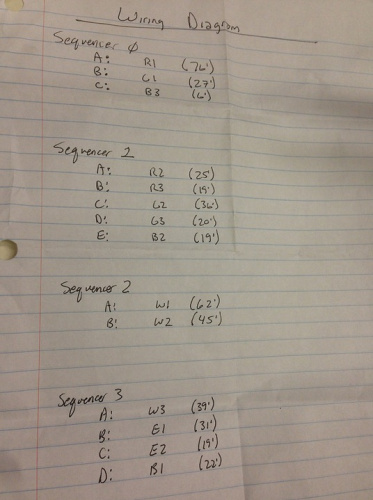 Wiring Diagram
Sequencer 0
A: R1 (76')
B: G1 (27')
C: B3 (6')
Sequencer 1
A: R2 (25')
B: R3 (19')
C: G2 (36')
D: G3 (20')
E: B2 (19')
Sequencer 2
A: W1 (62')
B: W2 (45')
Sequencer 3
A: W3 (39')
B: E1 (31')
C: E2 (19')
D: B1 (22')